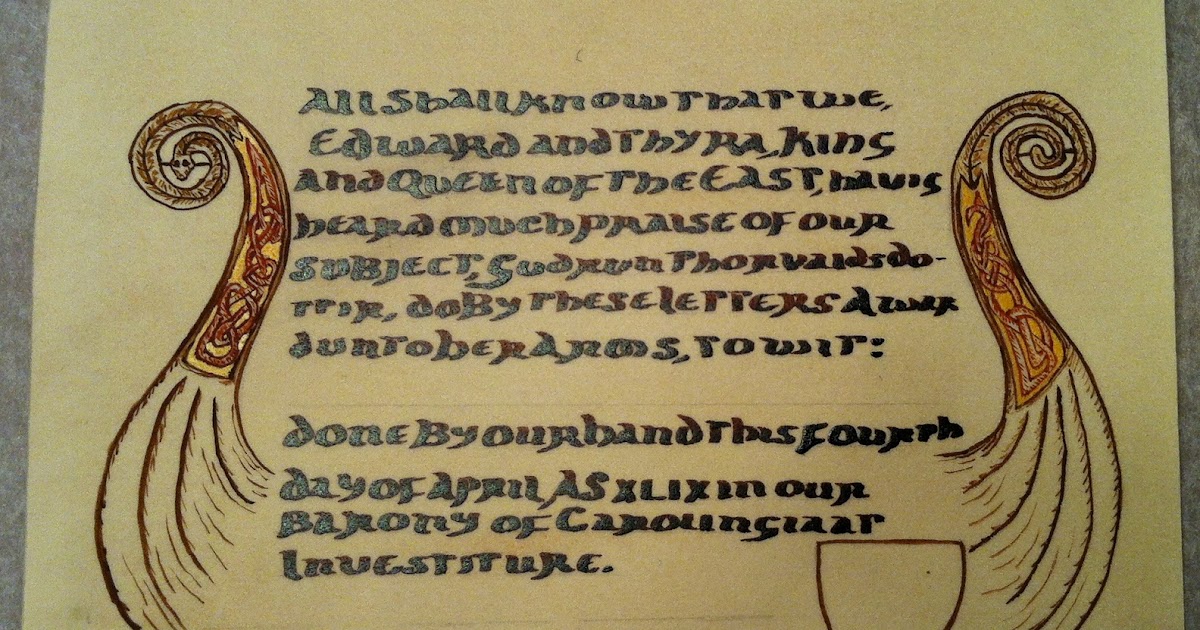 All Shall know that we,
Edward and Thyra, King
and Queen of the EAST, havig
heard much praise of our
subject, Gudrun Thorvaldsdo-
ttir, do By these letters Awar
d unto her Arms, to wit:
done By our hand this fourth
day of April AS XLIX in our
Barony of Carolingia at
Investiture.